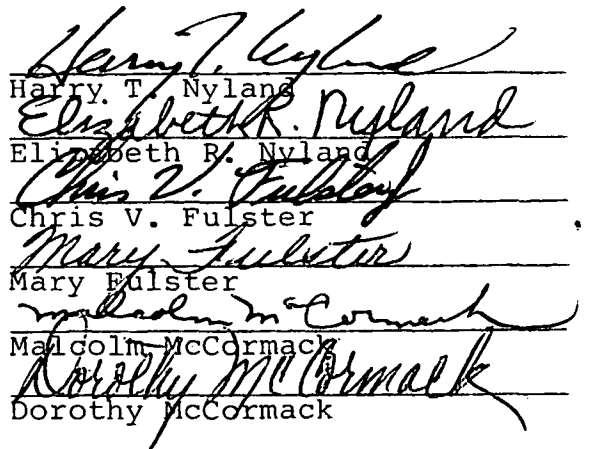 Harry T. Nyland
Harry T. Nyland
Elizabeth R. Nyland
Elizabeth R. Nyland
Chris V. Fulster
Chris V. Fulster
Mary Fulster
Mary Fulster
Malcolm McCormack
Malcolm McCormack
Dorothy McCormack
Dorothy McCormack